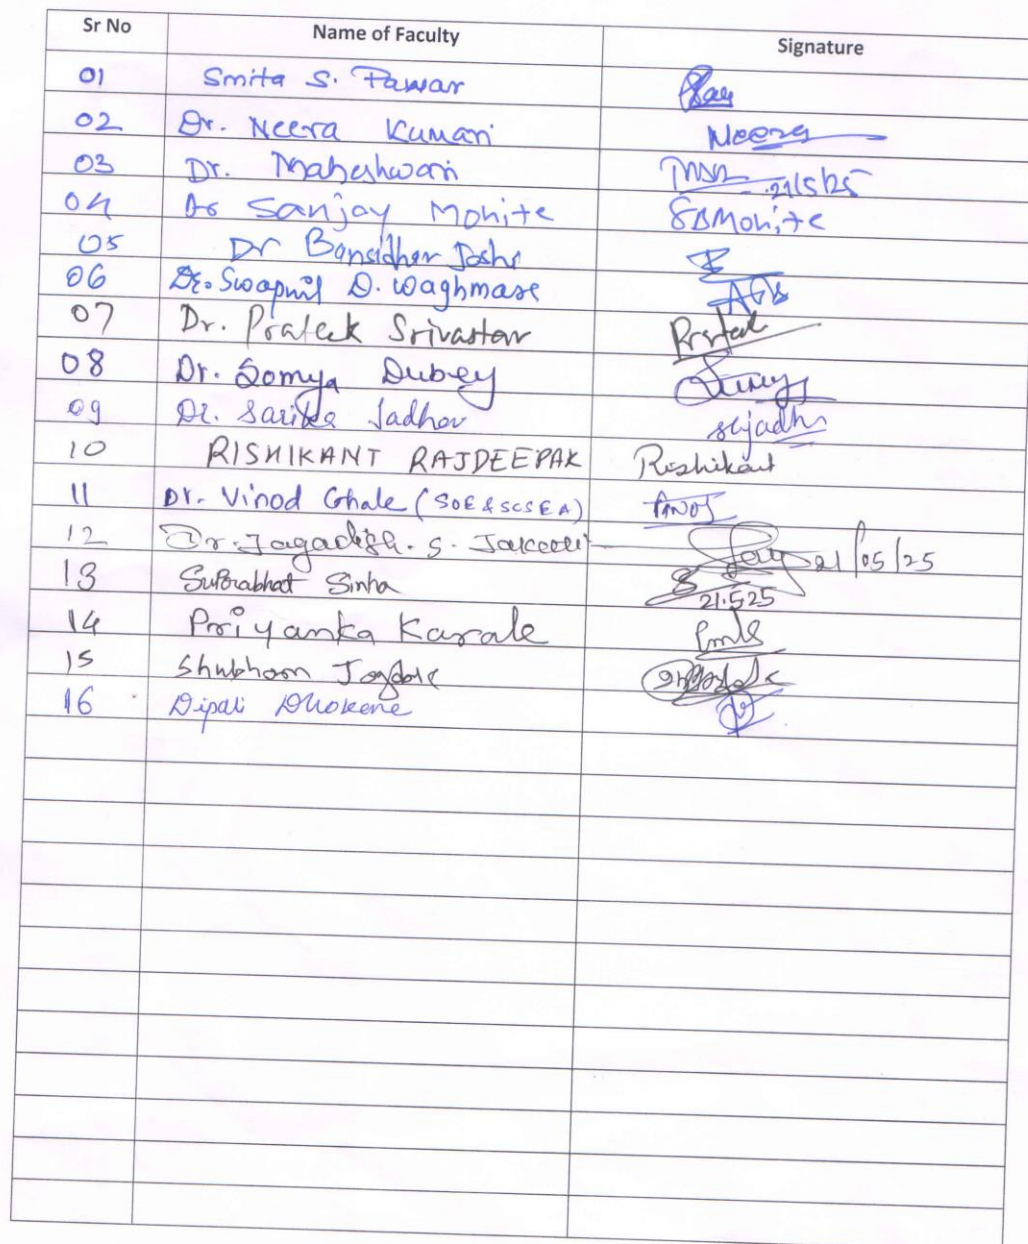 Sr No Name of Faculty Signature
01 Smita S. Pawar
02 Dr. Neera Kumari Neera
03 Dr. Maheshwari 21/5/25
04 Dr Sanjay Mohite SBMohite
05 Dr Bansidhar Joshi
06 Dr. Swapnil D. Waghmare
07 Dr. Prateek Srivastav Prateek
08 Dr. Somya Dubey
09 Dr. Sarika Jadhav sijadhv
10 RISHIKANT RAJDEEPAK Rishikant
11 Dr. Vinod Ghale (SOE & SCSEA)
12 Dr. Jagadish. S. 21/05/25
13 Suprabhat Sinha 21.5.25
14 Priyanka Karale
15 Shubham Jagdale
16 Dipali